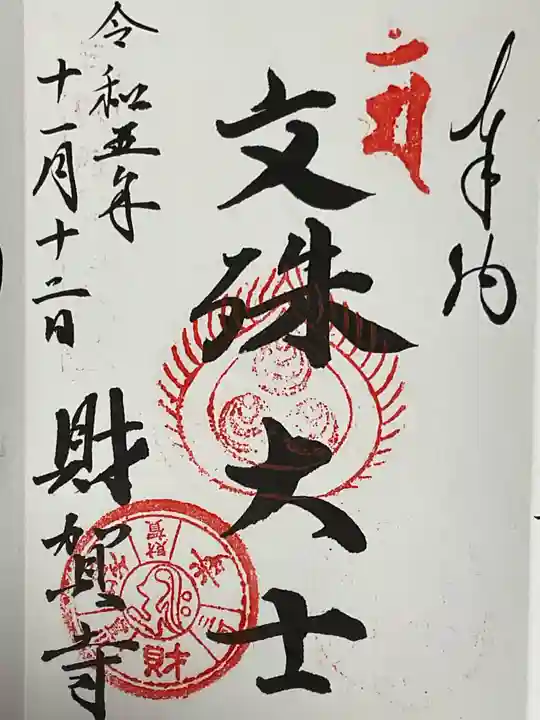 奉納
文殊大士
令和五年
十一月十二日
財賀寺
財賀